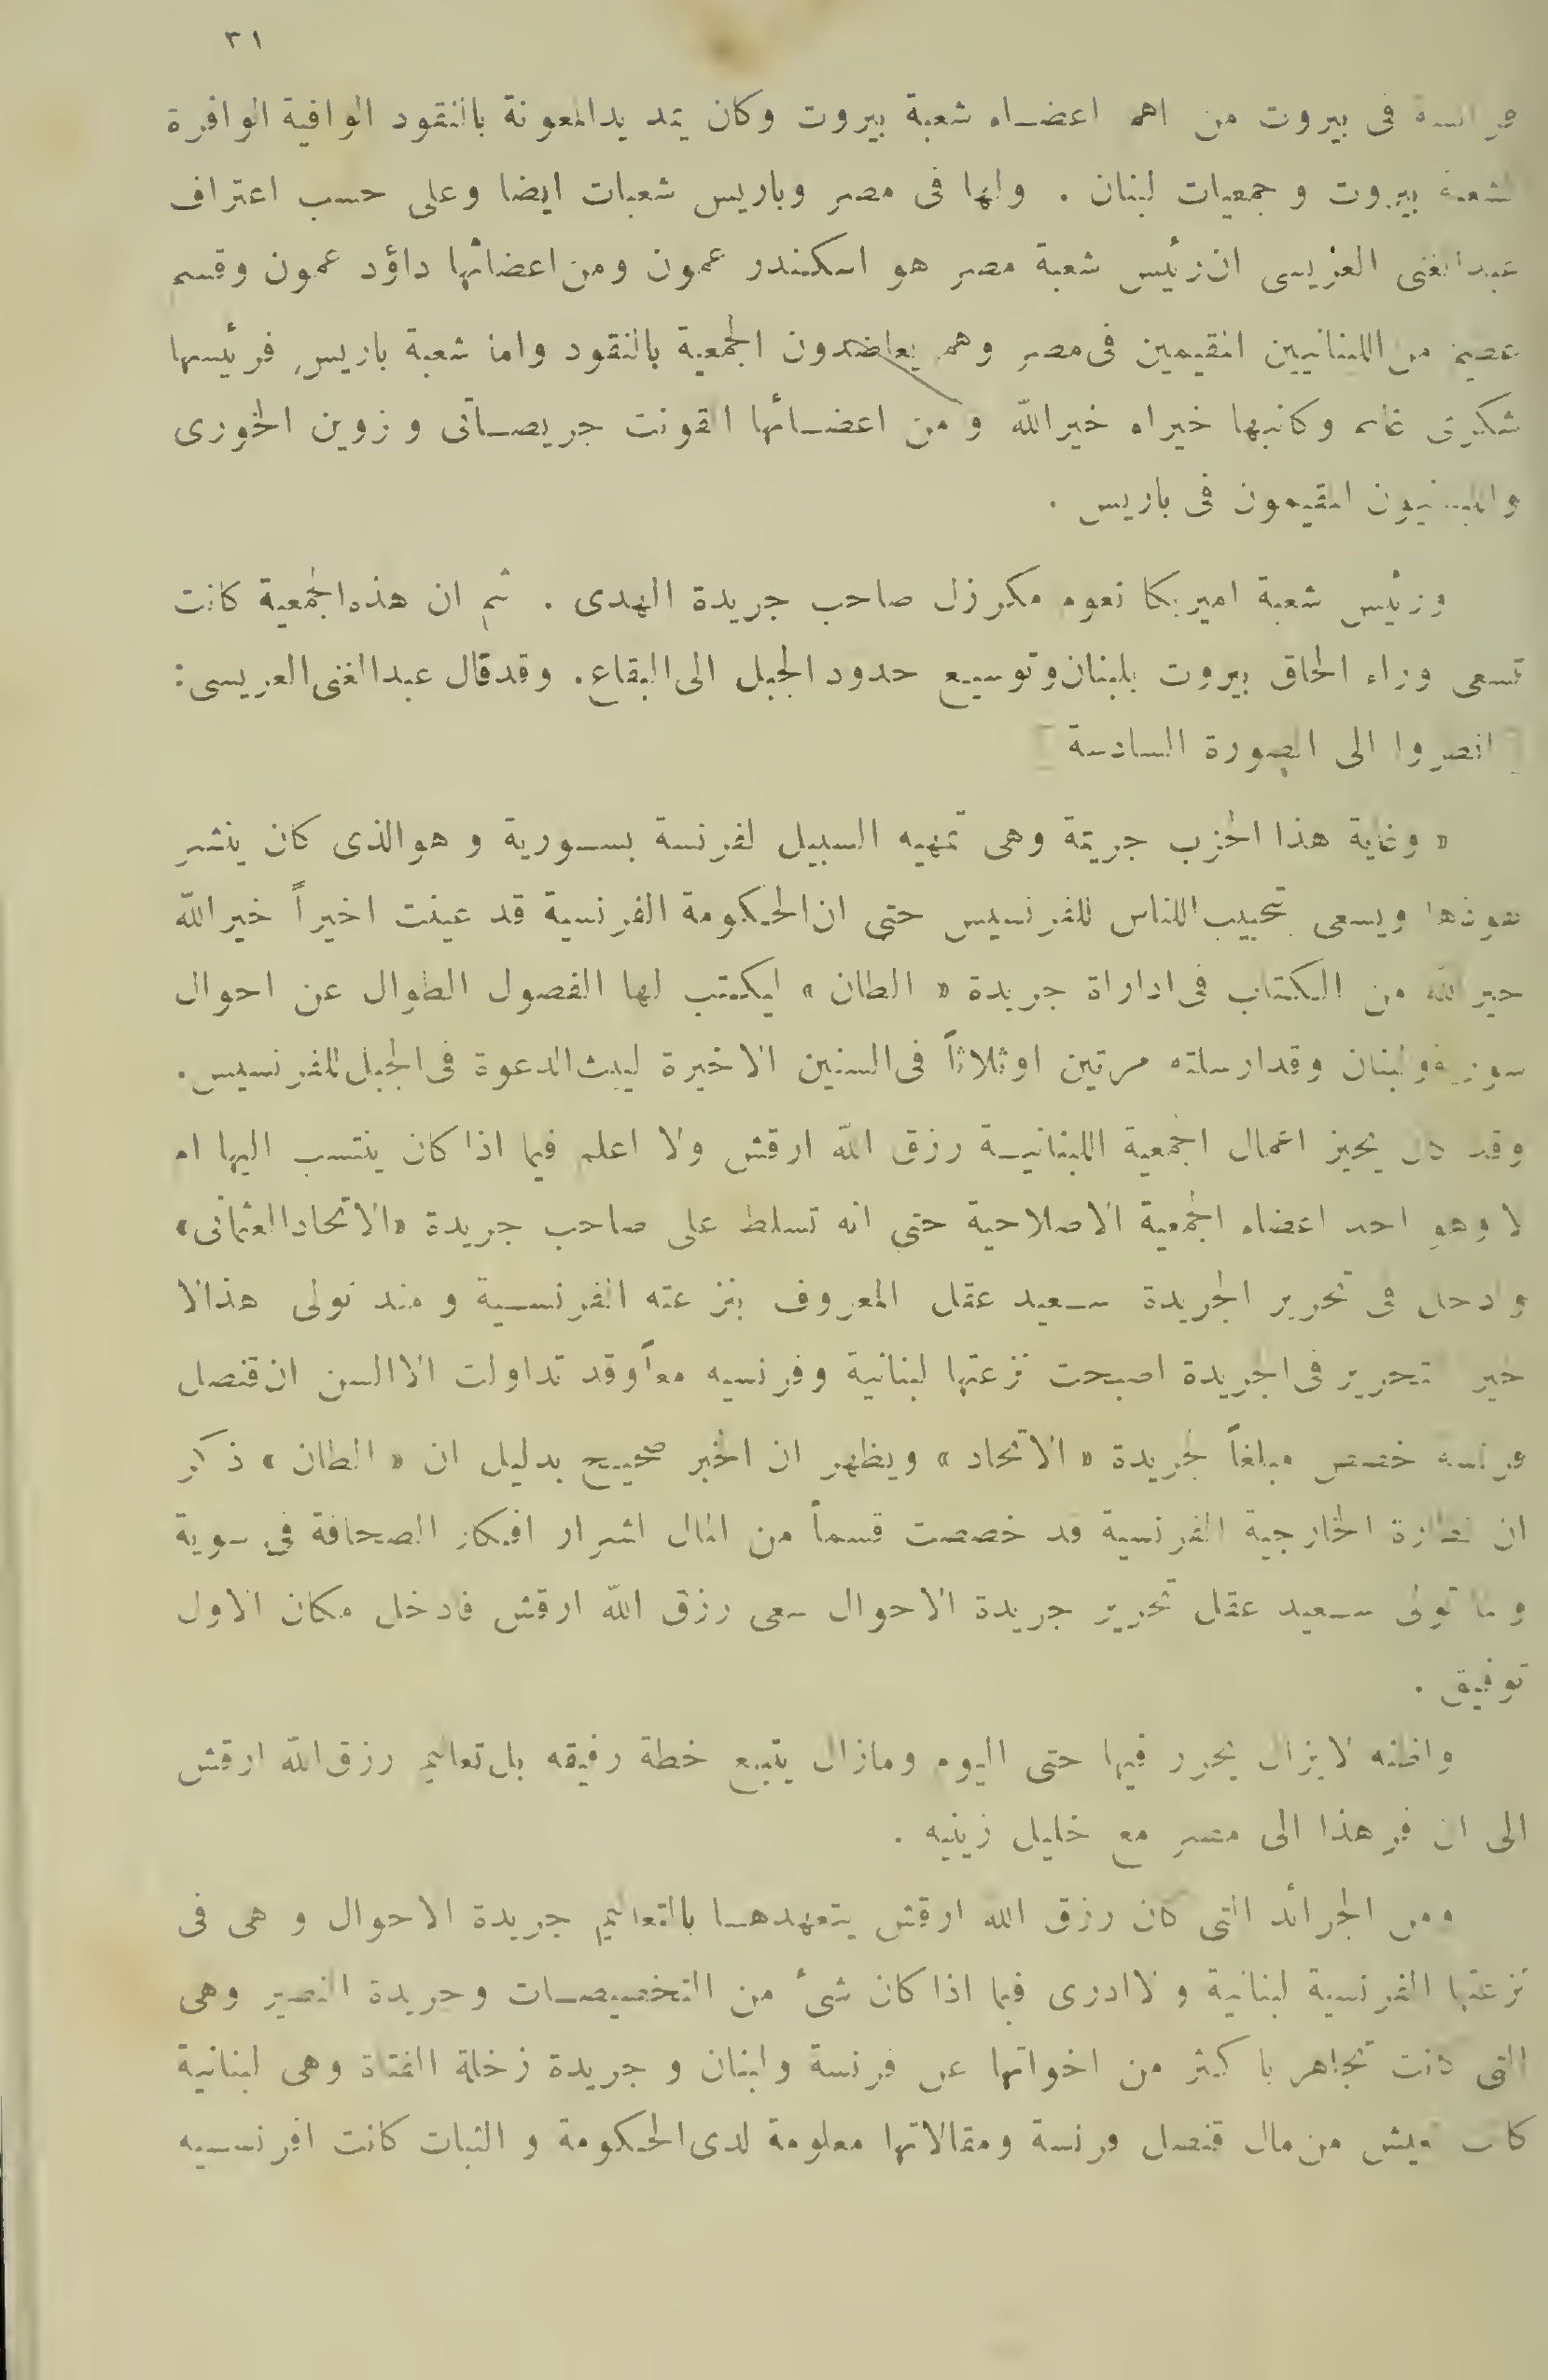 ٣١
فى بيروت من اهم اعضاء شعبة بيروت وكان يمد يدالمعونة بالنقود الوافية الوافرة
لشعبة بيروت وجمعيات لبنان . ولها فى مصر وباريس شعبات ايضا وعلى حسب اعتراف
عبدالغنى العريسى ان رئيس شعبة مصر هو اسكندر عمون ومن اعضائها داؤد عمون وقسم
عظيم من اللبنانيين المقيمين فى مصر وهم يعاضدون الجمعية بالنقود واما شعبة باريس فرئيسها
شكرى غانم وكاتبها خيرالله خيرالله ومن اعضائها القونت جريصاتى وزوين الخورى
واللبنانيون المقيمون فى باريس .
ورئيس شعبة اميريكا نعوم مكرزل صاحب جريدة الهدى . ثم ان هذه الجمعية كانت
تسعى وراء الحاق بيروت بلبنان وتوسيع حدود الجبل الى البقاع. وقدقال عبدالغنى العريسى :
[ انظروا الى الصورة السادسة ]
« وغاية هذا الحزب جريمة وهى تمهيد السبيل لفرنسة بسورية وهوالذى كان ينشر
نفوذها ويسعى بتحبيب الناس للفرنسيس حتى ان الحكومة الفرنسية قد عينت اخيراً خيرالله
خيرالله من الكتاب فى اداراة جريدة « الطان » ليكتب لها الفصول الطوال عن احوال
سورية ولبنان وقدارسلته مرتين اوثلاثاً فى السنين الاخيرة ليبث الدعوة فى الجبل للفرنسيس.
وقد كان يحيز اعمال الجمعية اللبنانية رزق الله ارقش ولا اعلم فيما اذا كان ينتسب اليها ام
لا وهو احد اعضاء الجمعية الاصلاحية حتى انه تسلط على صاحب جريدة «الاتحادالعثمانى»
وادخل فى تحرير الجريدة سعيد عقل المعروف بنزعته الفرنسية ومنذ تولى هذالا
خير التحرير فى الجريدة اصبحت نزعتها لبنانية وفرنسيه معاً وقد تداولت الاالسن ان قنصل
فرنسه خصص مبلغاً لجريدة « الاتحاد » ويظهر ان الخبر صحيح بدليل ان « الطان » ذكر
ان نظارة الخارجية الفرنسية قد خصصت قسماً من المال لشرار افكار الصحافة فى سوية
ولما تولى سعيد عقل تحرير جريدة الاحوال سعى رزق الله ارقش فادخل مكان الاول
توفيق .
واظنه لايزال يحرر فيها حتى اليوم ومازال يتبع خطة رفيقه بل تعاليم رزق الله ارقش
الى ان فر هذا الى مصر مع خليل زينيه .
ومن الجرائد التى كان رزق الله ارقش يتعهدها بالتعاليم جريدة الاحوال وهى فى
نزعتها الفرنسية لبنانية ولا ادرى فيما اذا كان شئ من التخصيصات وجريدة النصير وهى
التى كانت تجاهر باكثر من اخواتها عن فرنسة ولبنان وجريدة زحلة الفتاة وهى لبنانية
كانت تعيش من مال قنصل فرنسة ومقالاتها معلومة لدى الحكومة والثبات كانت افرنسيه